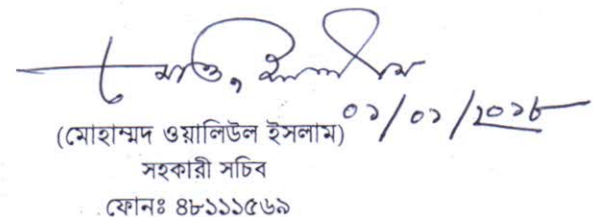 ০১/০১/২০১৮
(মোহাম্মদ ওয়ালিউল ইসলাম)
সহকারী সচিব
ফোনঃ ৪৮১১১৫৬৯